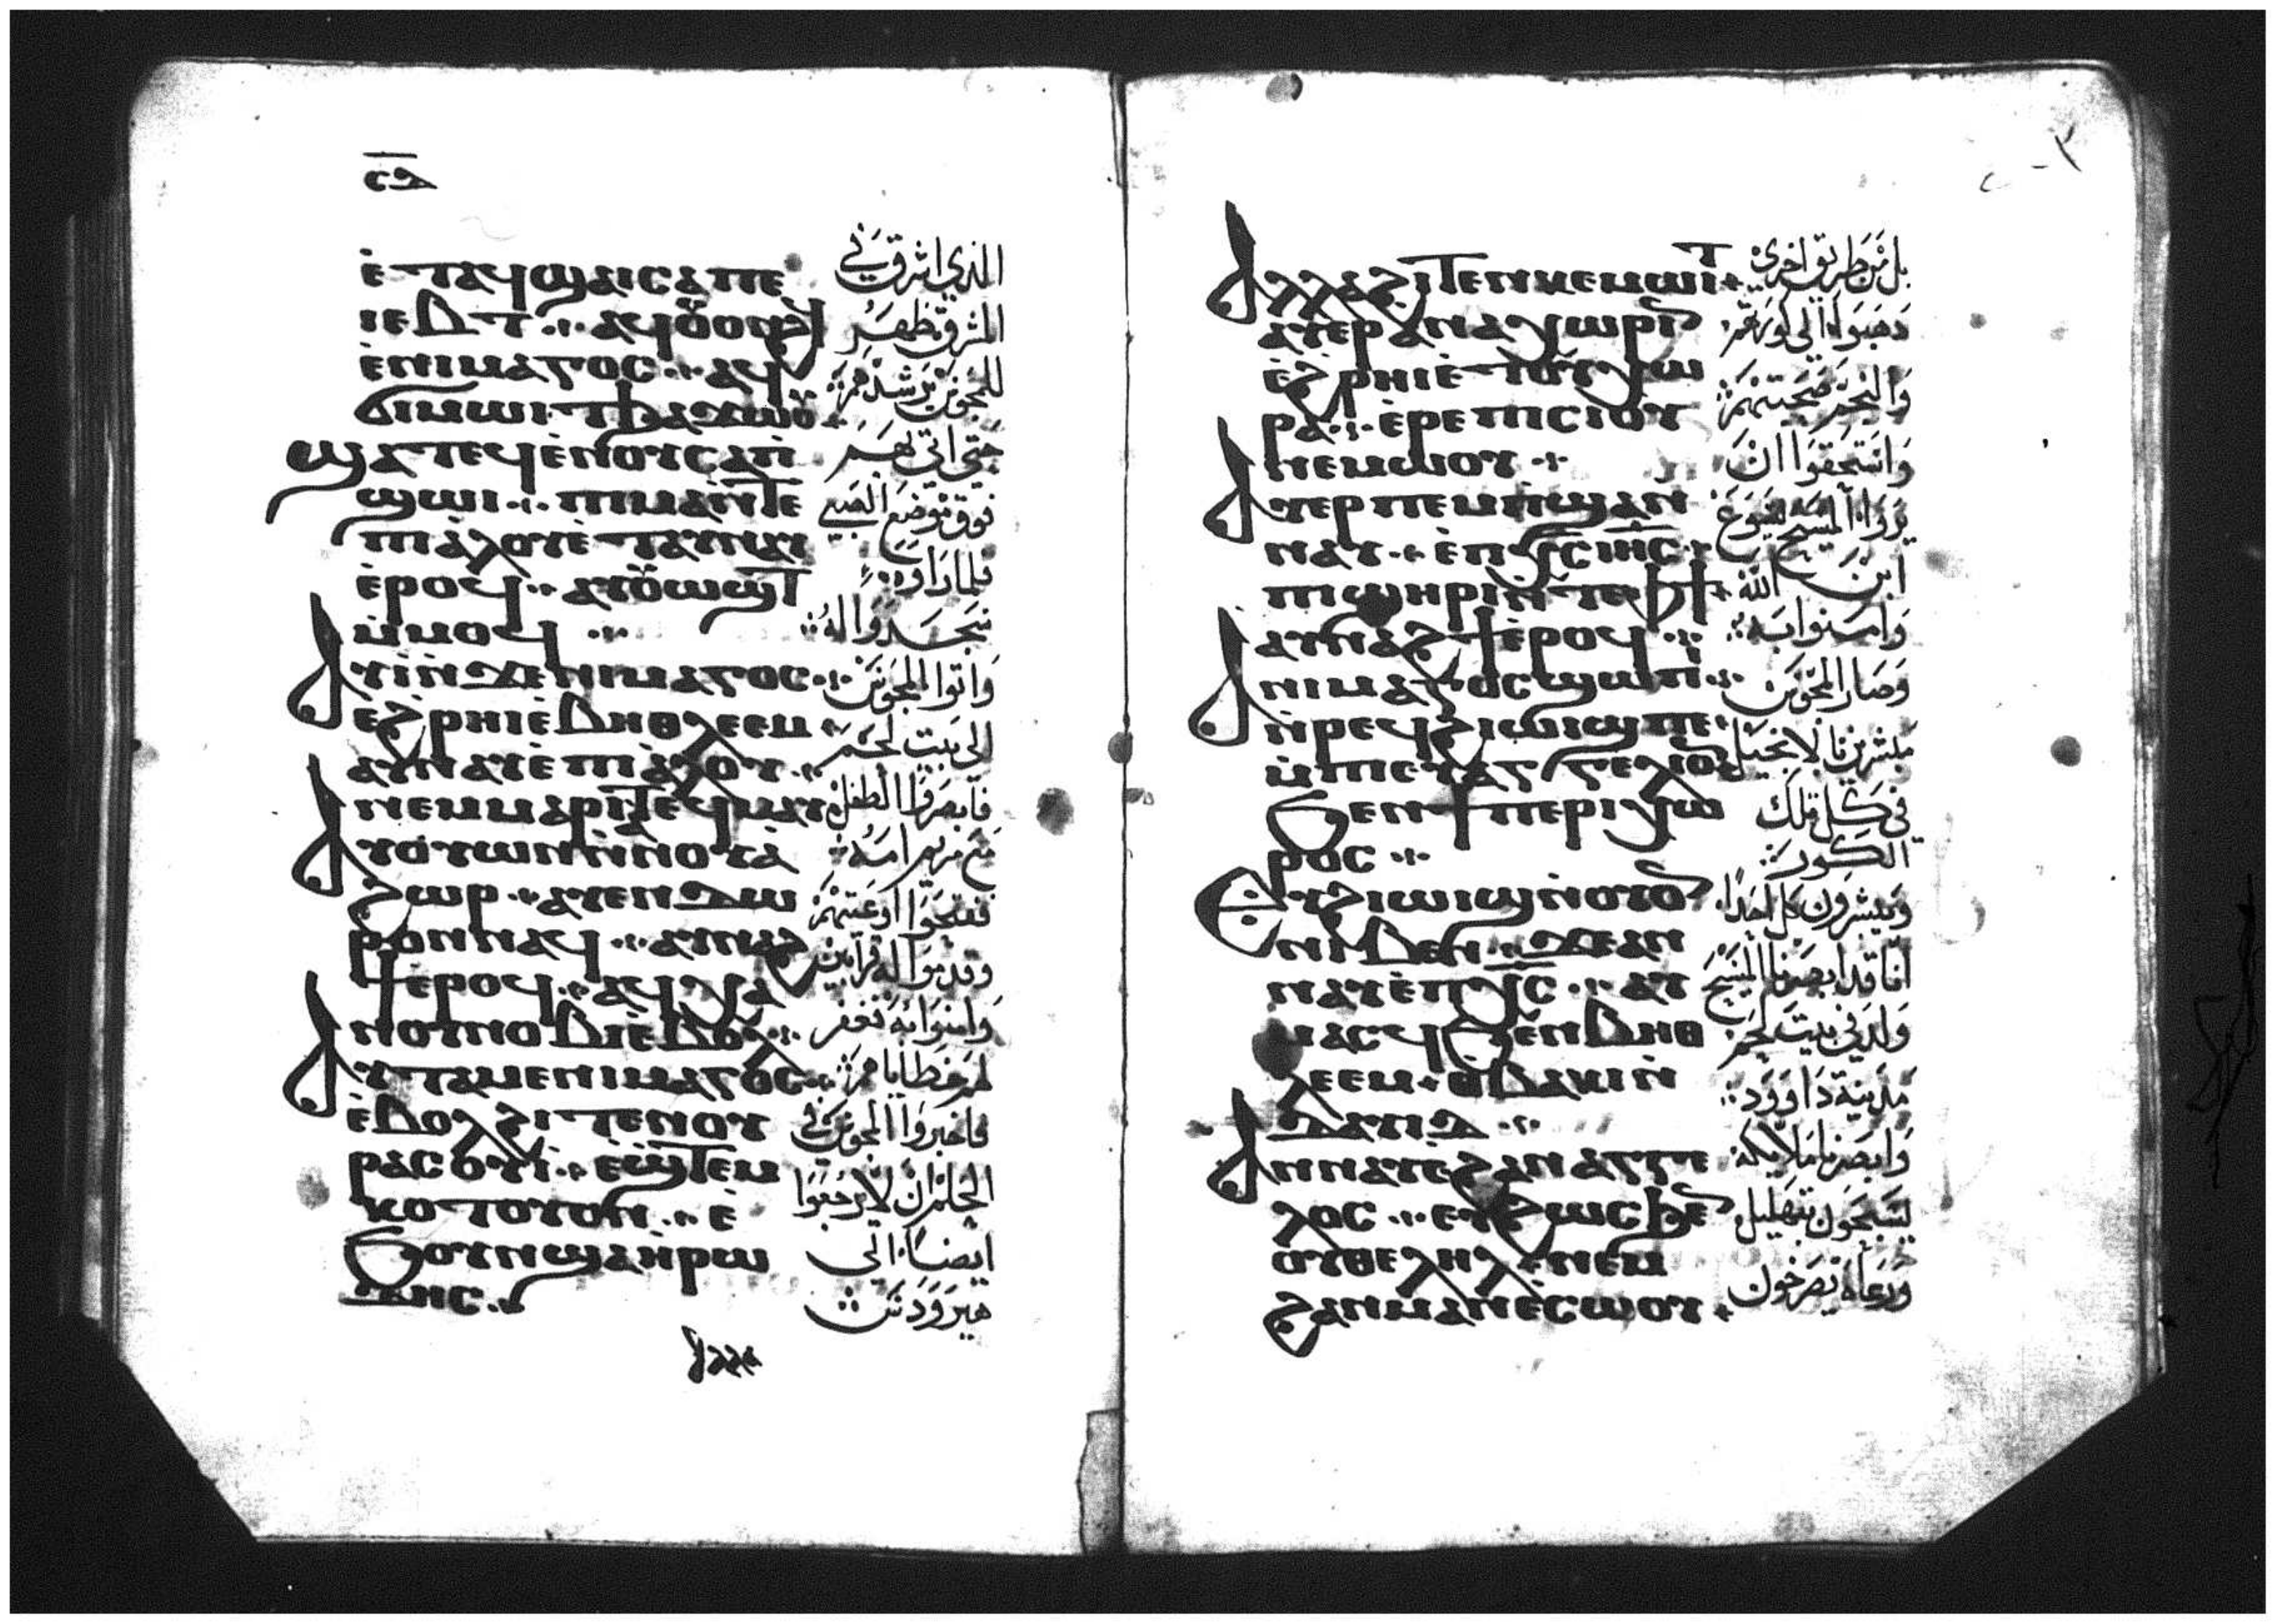 ⲥⲇ
ⲉ̀ⲧⲁϥϣⲁⲓ ⲥⲁⲡⲉ
ⲓⲉⲃⲧ ⲁϥⲟⲩⲟⲛϩϥ
ⲉ̀ⲛⲓⲙⲁⲅⲟⲥ ⲁϥ
ϭⲓⲙⲱⲓⲧ ϧⲁϫⲱⲟⲩ
ϣⲁⲧⲉϥⲉ̀ⲛⲟⲩ ⲥⲁⲡ̀
ϣⲱⲓ ⲡⲓⲙⲁ ⲛ̀ⲧⲉ
ⲡⲓⲁ̀ⲗⲟⲩ ⲉ̀ⲧⲁⲩⲛⲁⲩ
ⲉ̀ⲣⲟϥ ⲁⲩⲟⲩⲱϣⲧ
ⲙ̀ⲙⲟϥ
ⲁⲩⲓ̀ ⲛ̀ϫⲉ ⲛⲓⲙⲁⲅⲟⲥ
ⲉ̀ϩⲣⲏⲓ ⲉ̀ⲃⲏⲑⲗⲉⲉⲙ
ⲁⲩⲛⲁⲩ ⲉ̀ⲡⲓⲁ̀ⲗⲟⲩ
ⲛⲉⲙ ⲙⲁⲣⲓⲁ ⲧⲉϥⲙⲁⲩ
ⲁⲩⲟⲩⲱⲛ ⲛ̀ⲛⲟⲩⲁ̀
ϩⲱⲣ ⲁⲩⲉⲛ ⲇⲱ
ⲣⲟⲛ ⲛⲁϥ ⲁⲩⲛⲁϩ
ϯ ⲉ̀ⲣⲟϥ ⲁϥⲭⲁ
ⲛⲟⲩⲛⲟⲃⲓ ⲉ̀ⲃⲟⲗ
ⲁⲩⲧⲁⲙⲉ ⲛⲓⲙⲁⲅⲟⲥ
ⲉ̀ⲃⲟⲗϩⲓⲧⲉⲛ ⲟⲩ
ⲣⲁⲥⲟⲩⲓ̀ ⲉϣⲧⲉⲙ
ⲕⲟⲧⲟⲩ ⲟⲛ ⲉ̀
ϧⲟⲩⲛ ϣⲁ ⲏ̀ⲣⲱ
ⲇⲏⲥ
ⲁⲗⲗⲁ
الذي اشرق في
المشرق ظهر
للمجوس يرشدهم
حتى اتى بهم
فوق موضع الصبي
فلما راوه
سجدوا له
واتوا المجوس
الى بيت لحم
فابصروا الطفل
مع مريم امه
ففتحوا اوعيتهم
وقدموا له قرابين
وامنوا به فغفر
لهم خطاياهم
فاخبروا المجوس في
الحلم ان لا يرجعوا
ايضا الى
هيرودس
ⲁⲗⲗⲁ ϩⲓⲧⲉⲛ ⲕⲉⲙⲱⲓⲧ
ⲁⲩⲉⲣⲁⲛⲁⲭⲱⲣⲓⲛ
ⲉ̀ϩⲣⲏⲓ ⲉ̀ⲧⲟⲩⲭⲱ
ⲣⲁ ⲉ̀ⲣⲉ ⲡⲓⲥⲓⲟⲩ
ⲛⲉⲙⲱⲟⲩ
ⲁⲩⲉⲣⲡⲉⲙⲡ̀ϣⲁ ⲛ̀
ⲛⲁⲩ ⲉ̀ⲡⲭⲥ ⲓⲏⲥ
ⲡϣⲏⲣⲓ ⲛ̀ⲧⲉ ⲫϯ
ⲁⲩⲛⲁϩϯ ⲉ̀ⲣⲟϥ
ⲁ ⲛⲓⲙⲁⲅⲟⲥ ϣⲱⲡⲓ
ⲛ̀ⲣⲉϥϩⲓⲱⲓϣ ⲡⲉ
ⲙ̀ⲡⲓⲉⲩⲁⲅⲅⲉⲗⲓⲟⲛ
ϧⲉⲛ ϯⲡⲉⲣⲓⲭⲱ
ⲣⲟⲥ
ⲉⲩϩⲓⲱⲓϣ ⲛ̀ⲟⲩⲟⲛ
ⲛⲓⲃⲉⲛ ϫⲉ ⲁⲛ
ⲛⲁⲩ ⲉ̀ⲡⲭⲥ ⲁⲩ
ⲙⲁⲥϥ ϧⲉⲛ ⲃⲏⲑ
ⲗⲉⲉⲙ ⲑⲃⲁⲕⲓ ⲛ̀
ⲇⲁⲩⲓⲇ
ⲁⲛⲛⲁⲩ ⲉ̀ϩⲁⲛⲁⲅⲅⲉ
ⲗⲟⲥ ⲉⲩϩⲱⲥ ϧⲉⲛ
ⲟⲩⲑⲉⲗⲏⲗ ⲛⲉⲙ
ϩⲁⲛⲙⲁⲛⲉ̀ⲥⲱⲟⲩ
بل من طريق اخرى
ذهبوا الى كورتهم
والنجم صحبتهم
واستحقوا ان
يروا المسيح يسوع
ابن الله
وامنوا به
وصار المجوس
مبشرين بالانجيل
في كل تلك
الكور
ويبشرون كل احدا
اننا قد ابصرنا المسيح
ولد في بيت لحم
مدينة داوود
وابصرنا ملايكة
يسبحون بتهليل
ورعاة يصرخون